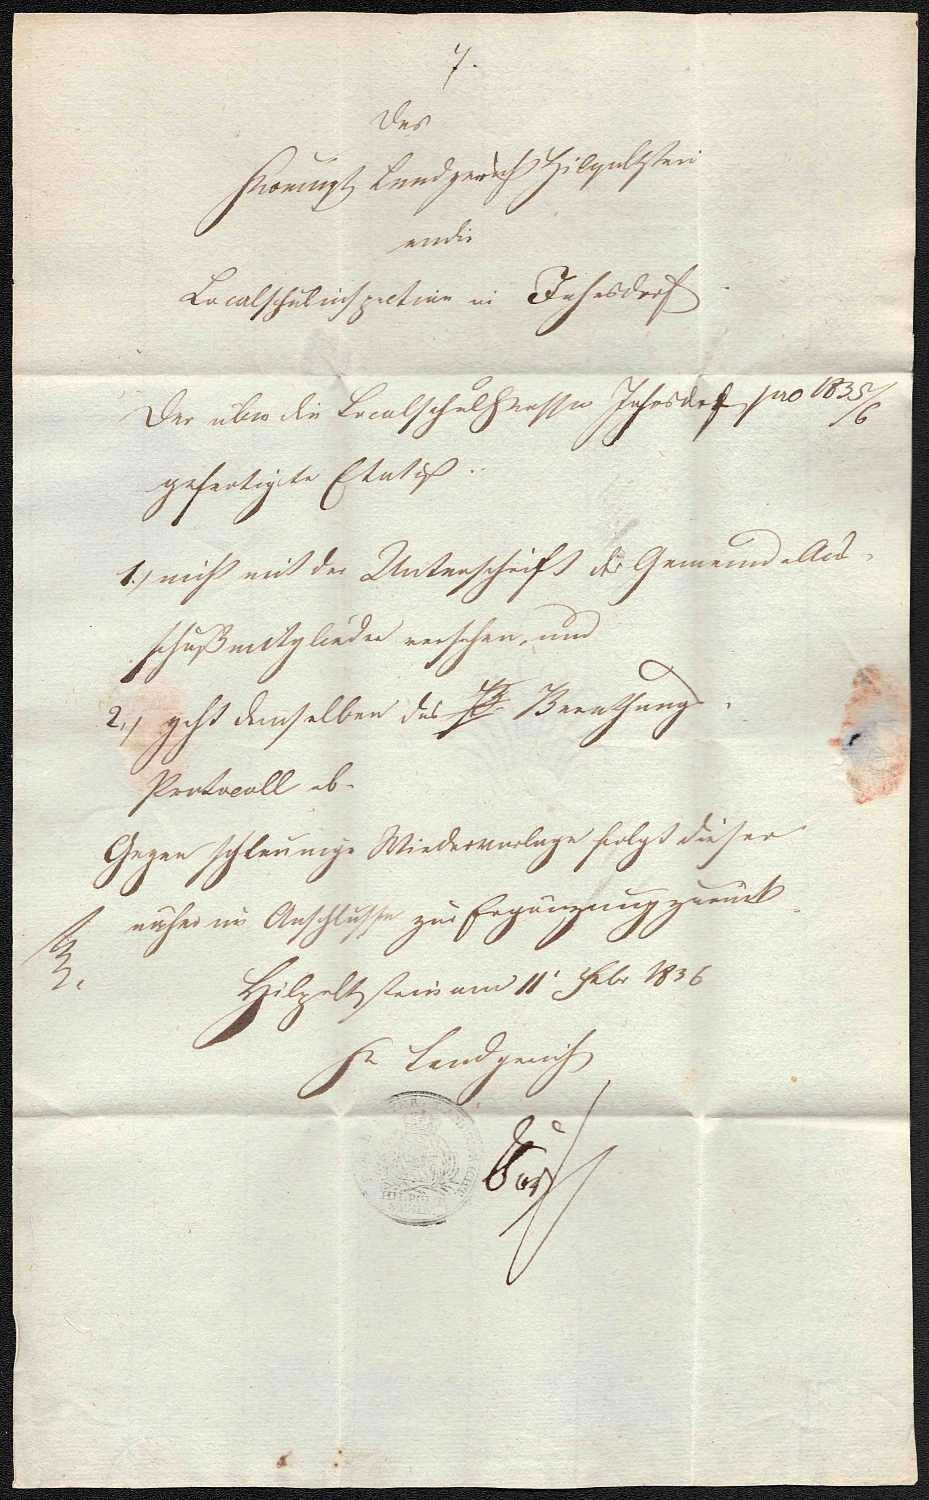 7.
Das
Koenigl Landgericht Hilpoltstein
an die
Localschulinspection in Jahrsdorf
Der über die Localschulkasse Jahrsdorf pro 1835/6
gefertigte Etat ist
1.) nicht mit der Unterschrift der Gemeinde Aus-
schußmitglieder versehen, und
2.) geht demselben das Berathungs-
Protocoll ab.
Gegen schleunige Wiedervorlage folgt dieser
daher im Anschlusse zur Ergänzung zurück
Hilpoltstein am 11' Febr 1836
K. Landgericht
HILPOLT
STEIN